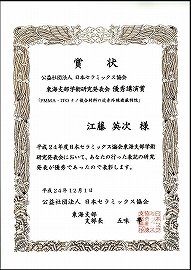 賞状
公益社団法人 日本セラミックス協会
東海支部学術研究発表会 優秀講演賞
「PMMA-ITOナノ複合材料の近赤外線遮蔽特性」
江藤 英次 様
平成24年度日本セラミックス協会東海支部学術
研究発表会において、あなたの行った表記の研究
発表が優秀であったので表彰します。
平成24年12月1日
公益社団法人 日本セラミックス協会
東海支部
支部長 五味